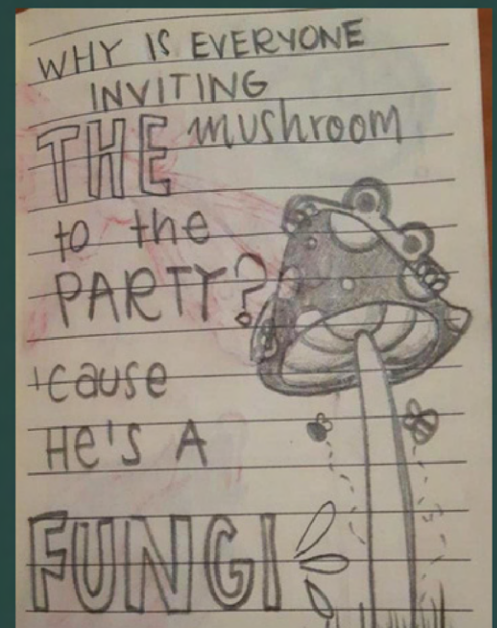 WHY IS EVERYONE
INVITING
THE mushroom
to the
PARTY?
'cause
He's A
FUNGI